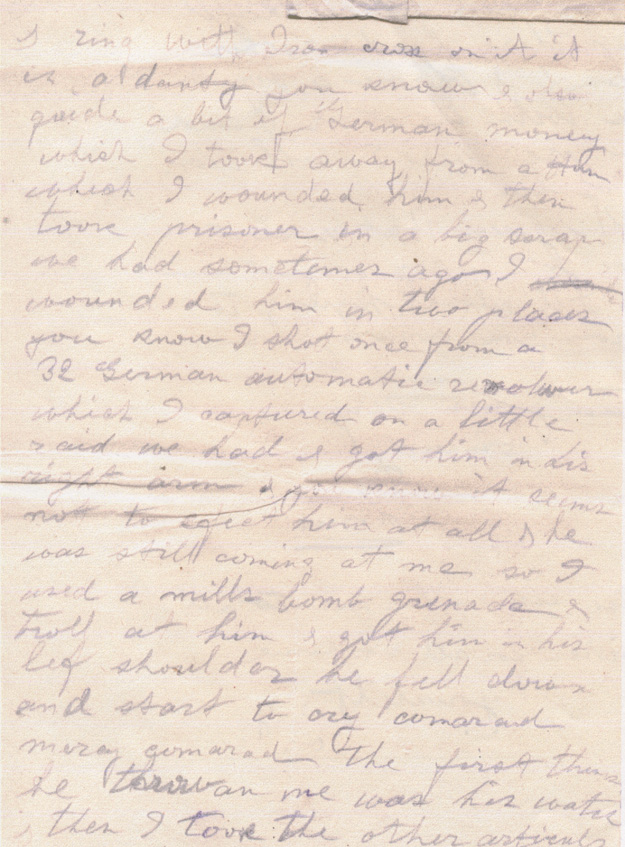 I ring with Iron cross on it it
is a danty you know & also
quide a bit of German money
which I took away from a Hun
which I wounded him & then
took prisoner in a big scrap
we had sometimes ago I
wounded him in two places
you know I shot once from a
32 German automatic revolwer
which I captured on a little
raid we had & got him in his
right arm & you know it seems
not to efect him at all & he
was still coming at me so I
used a mills bomb grenade &
troll at him & got him in his
lef shoulder he fell down
and start to cry comarad
mercy comarad the first thing
he throw an me was his watch
& then I took the other articuls